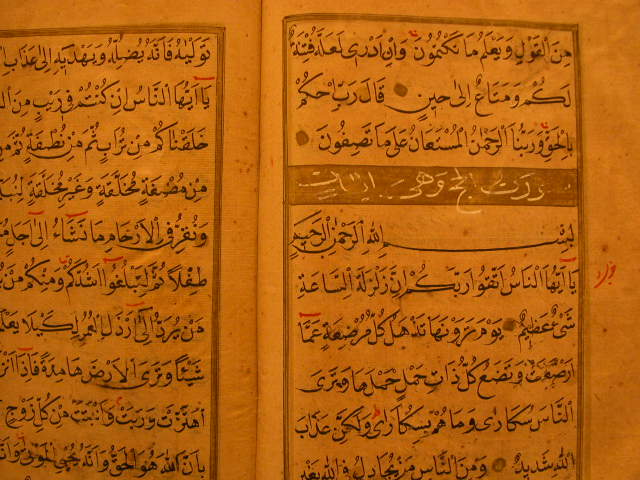 مِنَ الْقَوْلِ وَيَعْلَمُ مَا تَكْتُمُونَ وَاِنْ اَدْرِى لَعَلَّهُ فِتْنَةٌ
لَكُمْ وَمَتَاعٌ اِلَى حِينٍ قَالَ رَبِّ احْكُمْ
بِالْحَقِّ وَرَبُّنَا الرَّحْمٰنُ الْمُسْتَعَانُ عَلَى مَا تَصِفُونَ
سورت الحج وهى ايات
بِسْمِ اللهِ الرَّحْمٰنِ الرَّحِيمِ
يَا اَيُّهَا النَّاسُ اتَّقُوا رَبَّكُمْ اِنَّ زَلْزَلَةَ السَّاعَةِ
شَىْءٌ عَظِيمٌ يَوْمَ تَرَوْنَهَا تَذْهَلُ كُلُّ مُرْضِعَةٍ عَمَّا
اَرْضَعَتْ وَتَضَعُ كُلُّ ذَاتِ حَمْلٍ حَمْلَهَا وَتَرَى
النَّاسَ سُكَارَى وَمَا هُمْ بِسُكَارَى وَلَكِنَّ عَذَابَ
اللهِ شَدِيدٌ وَمِنَ النَّاسِ مَنْ يُجَادِلُ فِى اللهِ بِغَيْرِ
تَوَلَّاهُ فَاَنَّهُ يُضِلُّهُ وَيَهْدِيهِ اِلَى عَذَابِ
يَا اَيُّهَا النَّاسُ اِنْ كُنْتُمْ فِى رَيْبٍ مِنَ
خَلَقْنَاكُمْ مِنْ تُرَابٍ ثُمَّ مِنْ نُطْفَةٍ ثُمَّ مِنْ
مِنْ مُضْغَةٍ مُخَلَّقَةٍ وَغَيْرِ مُخَلَّقَةٍ
وَنُقِرُّ فِى الْاَرْحَامِ مَا نَشَاءُ اِلَى اَجَلٍ
طِفْلاً ثُمَّ لِتَبْلُغُوا اَشُدَّكُمْ وَمِنْكُمْ مَنْ
مَنْ يُرَدُّ اِلَى اَرْذَلِ الْعُمُرِ لِكَيْلَا يَعْلَمَ
شَيْئًا وَتَرَى الْاَرْضَ هَامِدَةً فَاِذَا
اهْتَزَّتْ وَرَبَتْ وَاَنْبَتَتْ مِنْ كُلِّ زَوْجٍ
بِاَنَّ اللهَ هُوَ الْحَقُّ وَاَنَّهُ يُحْيِى الْمَوْتَى وَاَنَّهُ